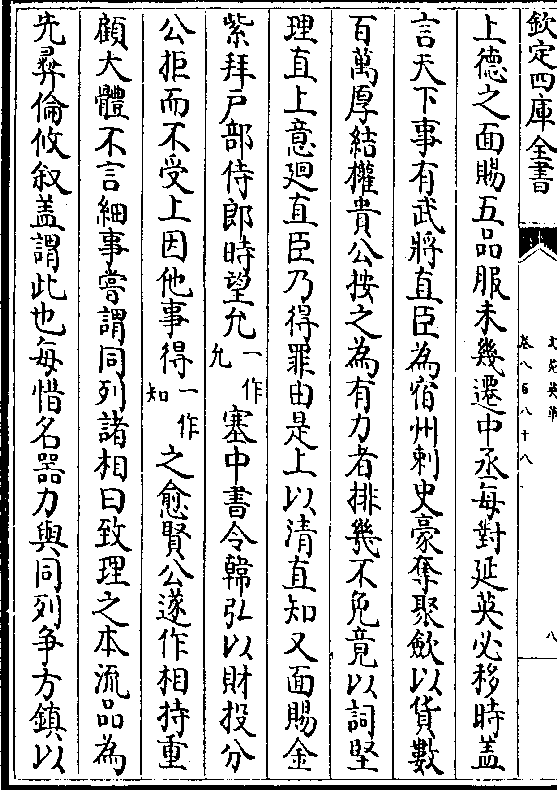 欽定四庫全書
文苑英華
卷八百八十八
八
上德之面賜五品服未幾遷中丞每對延英必移時蓋
言天下事有武將直臣為宿州刺史豪奪聚歛以貨數
百萬厚結權貴公按之為有力者排幾不免竟以詞堅
理直上意廻直臣乃得罪由是上以清直知又面賜金
紫拜戶部侍郎時望允一作允塞中書令韓弘以財投分
公拒而不受上因他事得一作知之愈賢公遂作相持重
顧大體不言細事嘗謂同列諸相曰致理之本流品為
先彞倫攸叙盖謂此也每惜名器力與同列爭方鎮以